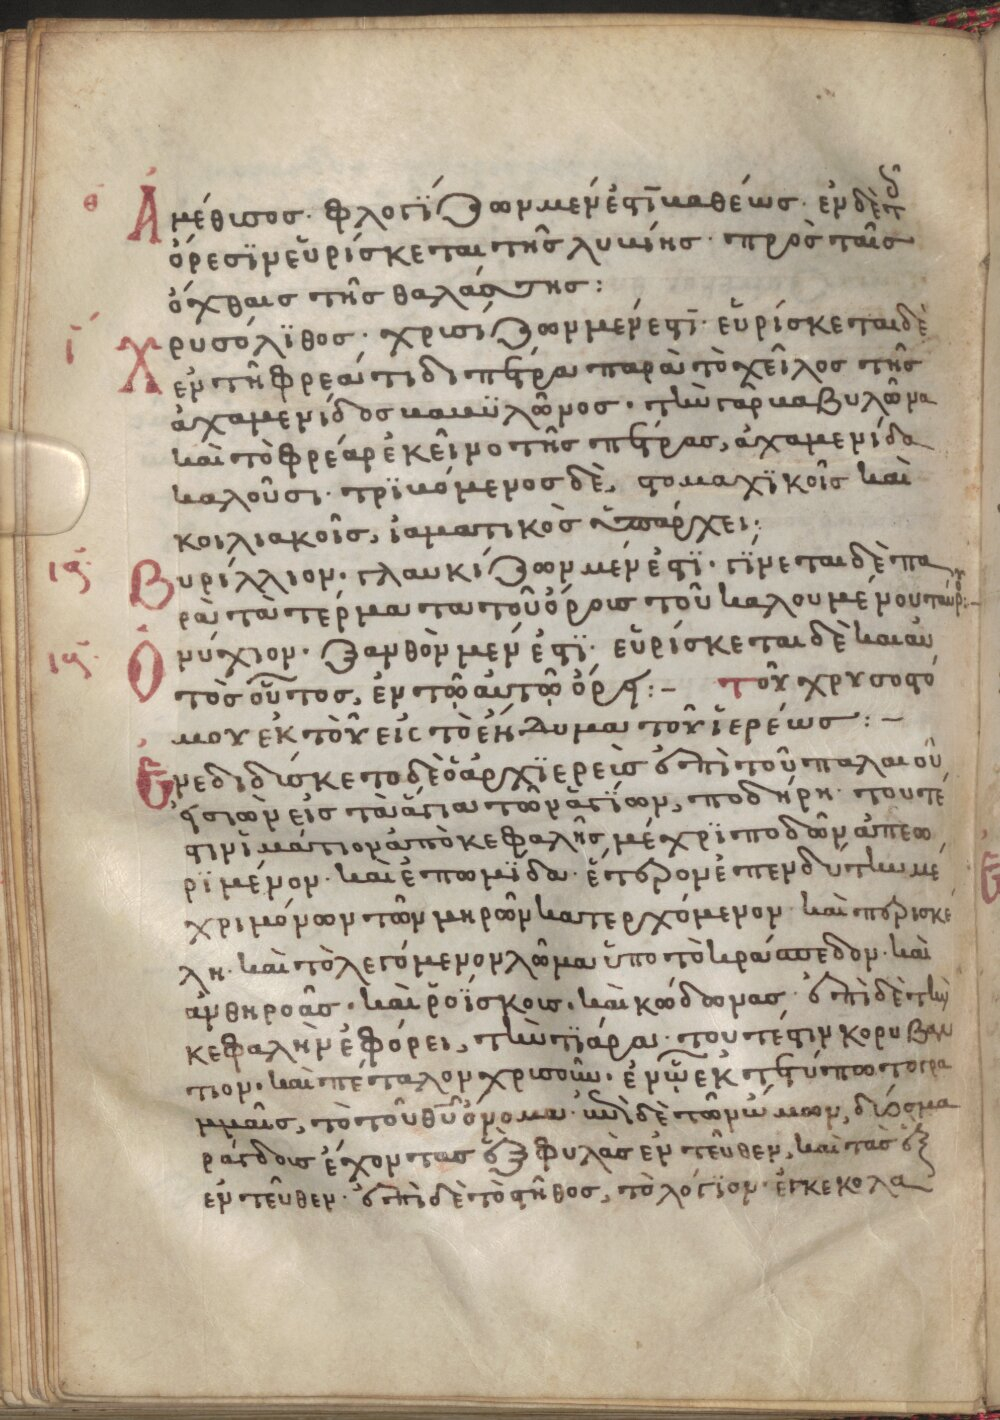 θ Ἀμέθισος· φλογΐζων μέν ἐστῒ καθέως· ἐν δὲ τ
ὄρεσϊν εὑρίσκεται τῆς λυκίης· πρὸς ταῖς
ὄχθαις τῆς θαλάσσης:
ι Χρυσόλϊθος· χρισίζων μέν ἐστῒ· εὑρίσκεται δὲ
ἐν τῇ φρεάτιδι πέτρα παρὰ τὸ χεῖλος τῆς
ἀχαμενίδος καικϋλῶνος· τὴν γὰρ καβυλῶνα
καὶ τὸ φρέαρ ἐκεῖνο τῆς πέτρας, ἀχαμενίδα
καλοῦσι· τρϊκόμενος δὲ, στομαχϊκοῖς καὶ
κοιλιακοῖς, ἰαματικὸς ὑπάρχει:
ια Βυρίλλιον· γλαυκίζων μέν ἐστϊ· γΐνεται δὲ πα
ρὰ τὰ τέρματα τοῦ ὄρους τοῦ καλουμένου ταύρ:-
ιβ Ὀνύχιον· ξανθὸν μέν ἐστϊ· εὑρίσκεται δὲ καὶ αὐ
τὸς οὗτος, ἐν τῷ αὐτῷ ὄρει:- τοῦ χρυσοστό
μου ἐκ τοῦ εἰς τὸ ἔνδυμα τοῦ ἱερέως:-
Ἐνεδιδύσκετο δὲ ὁ ἀρχϊερεὶς ἐπὶ τοῦ παλαιοῦ
εἰσιὼν εἰς τὰ ἅγια τῶν ἁγΐων, ποδήρη· τουτέ
στιν ἱμάτιον ἀπὸ κεφαλῆς μέχρϊ ποδῶν ἀπεω
ρϊμένον· καὶ ἐπωμΐδα· ἕτερον ἐπενδύτην μέ
χρι μόνων τῶν μηρῶν κατερχόμενον· καὶ περισκέ
λη· καὶ τὸ λεγόμενον λῶμα ὑπο τὸ κράσπεδον· καὶ
ἀνθηροὰς· καὶ ῥοΐσκους· καὶ κώδωνας· ἐπὶ δὲ τὴν
κεφαλὴν ἐφόρει, τὴν τϊάραν· τουτέστιν κορυβάν
τιον· καὶ πέταλον χρισοῦν· ἐν ᾧ ἐκτετύπωτο γρά
μμασι, τὸ τοῦ θυ ὄνομα· ἐπὶ δὲ τῶν ὤμων, δύο σμα
ράγδους ἔχοντας ἓξ φυλὰς ἐντεῦθεν, καὶ τὰς ἓξ
ἐντεῦθεν· ἐπὶ δὲ τὸ στῆθος, τὸ λόγϊον· ἐγκεκολα